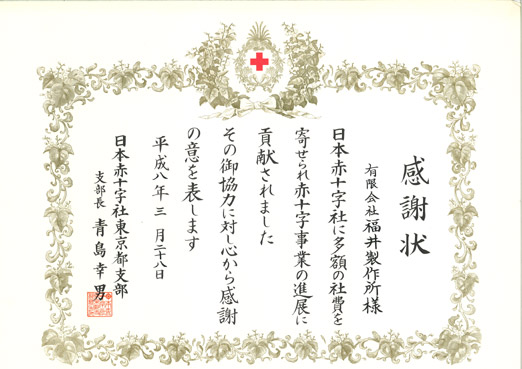 感謝状
有限会社福井製作所様
日本赤十字社に多額の社費を
寄せられ赤十字事業の進展に
貢献されました
その御協力に対し心から感謝
の意を表します
平成八年三月二十八日
日本赤十字社東京都支部
支部長青島幸男